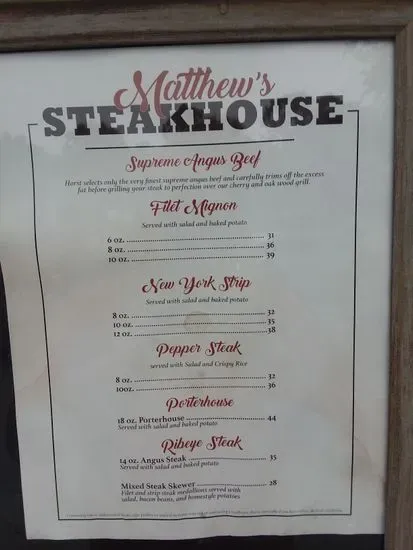 Matthew's
STEAKHOUSE
Supreme Angus Beef
Horst selects only the very finest supreme angus beef and carefully trims off the excess
fat before grilling your steak to perfection over our cherry and oak wood grill.
Filet Mignon
Served with salad and baked potato
6 oz. 31
8 oz. 36
10 oz. 39
New York Strip
Served with salad and baked potato
8 oz. 32
10 oz. 35
12 oz. 38
Pepper Steak
served with Salad and Crispy Rice
8 oz. 32
10oz. 36
Porterhouse
18 oz. Porterhouse 44
Served with salad and baked potato
Ribeye Steak
14 oz. Angus Steak 35
Served with salad and baked potato
Mixed Steak Skewer 28
Filet and strip steak medallions served with
salad, bacon beans, and homestyle potatoes